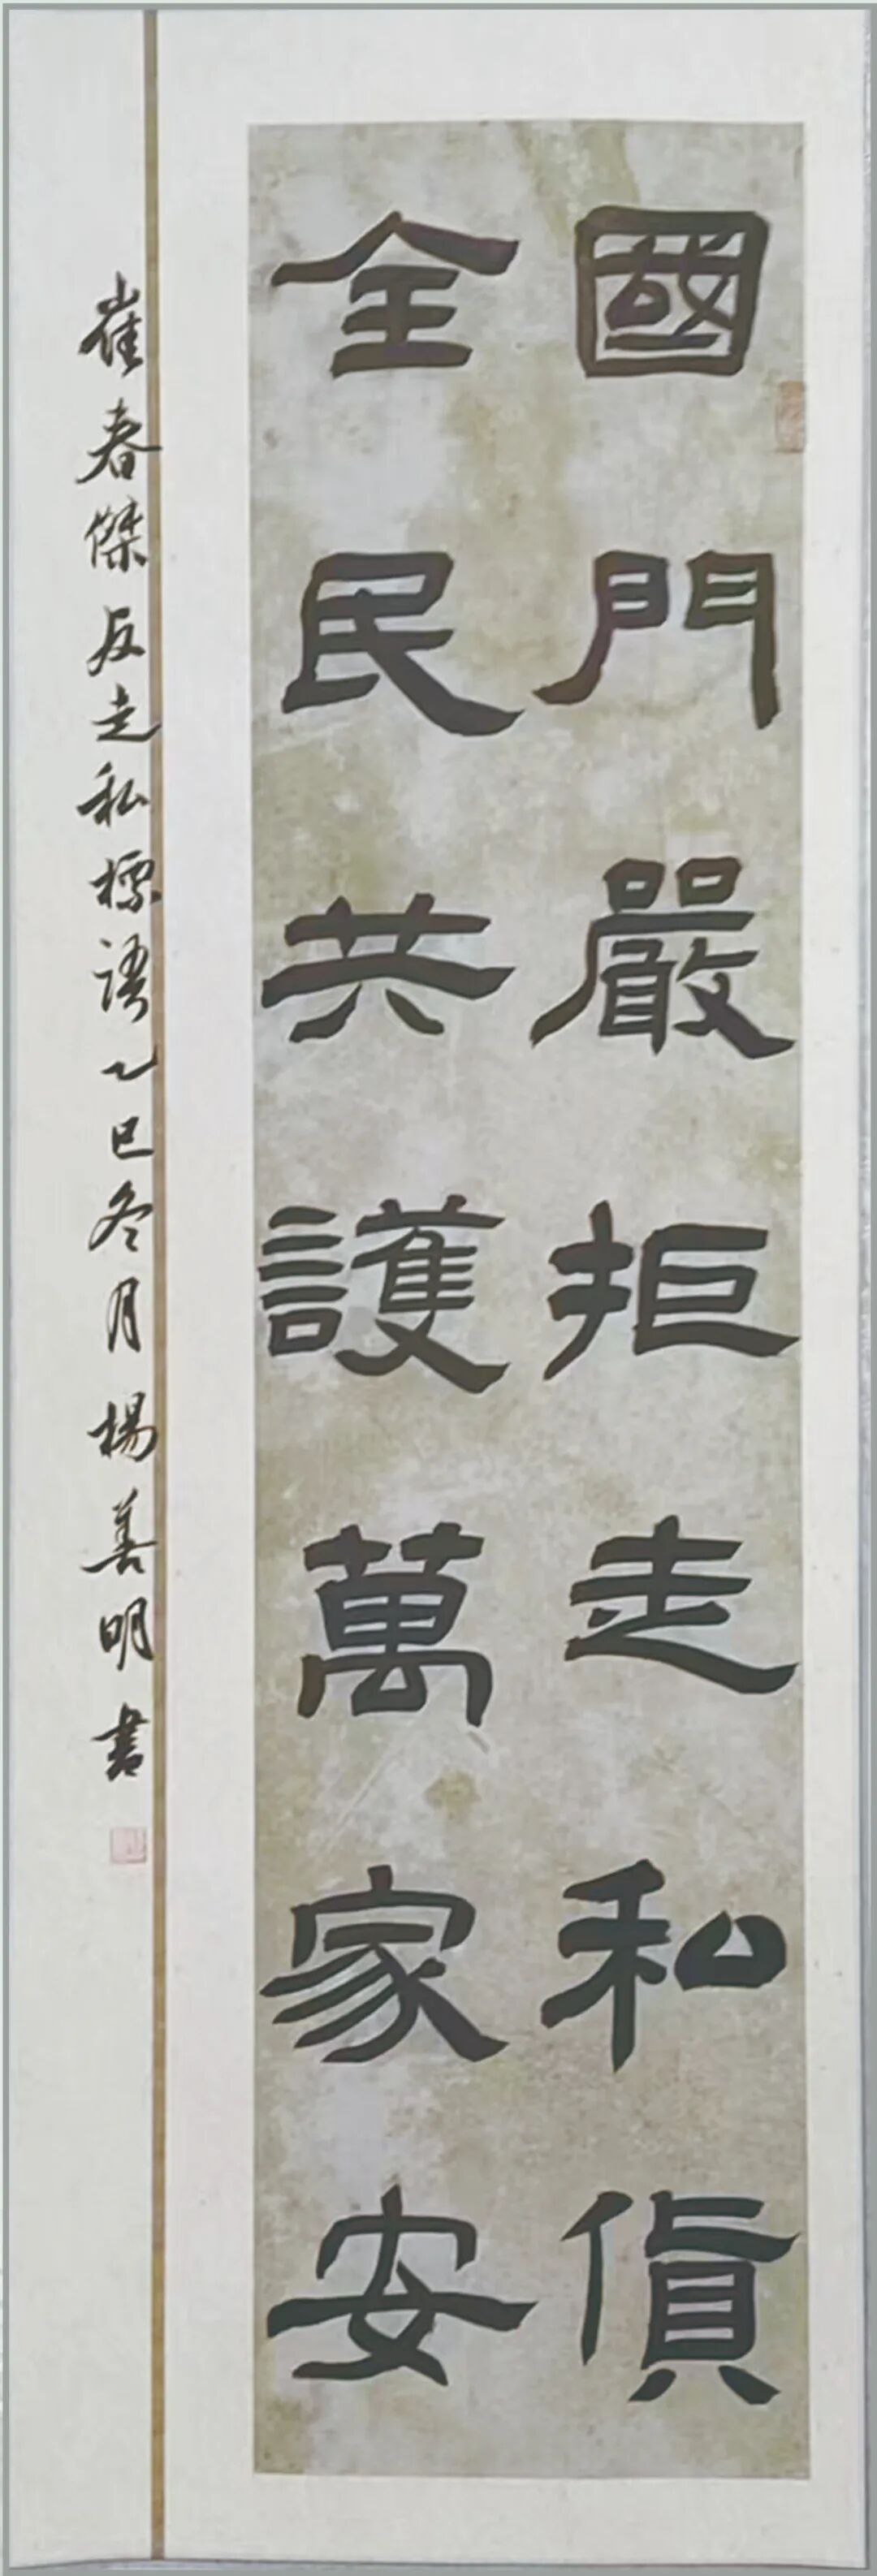 國門嚴拒走私貨
全民共護萬家安
崔春傑反走私標語乙巳冬月楊善明書